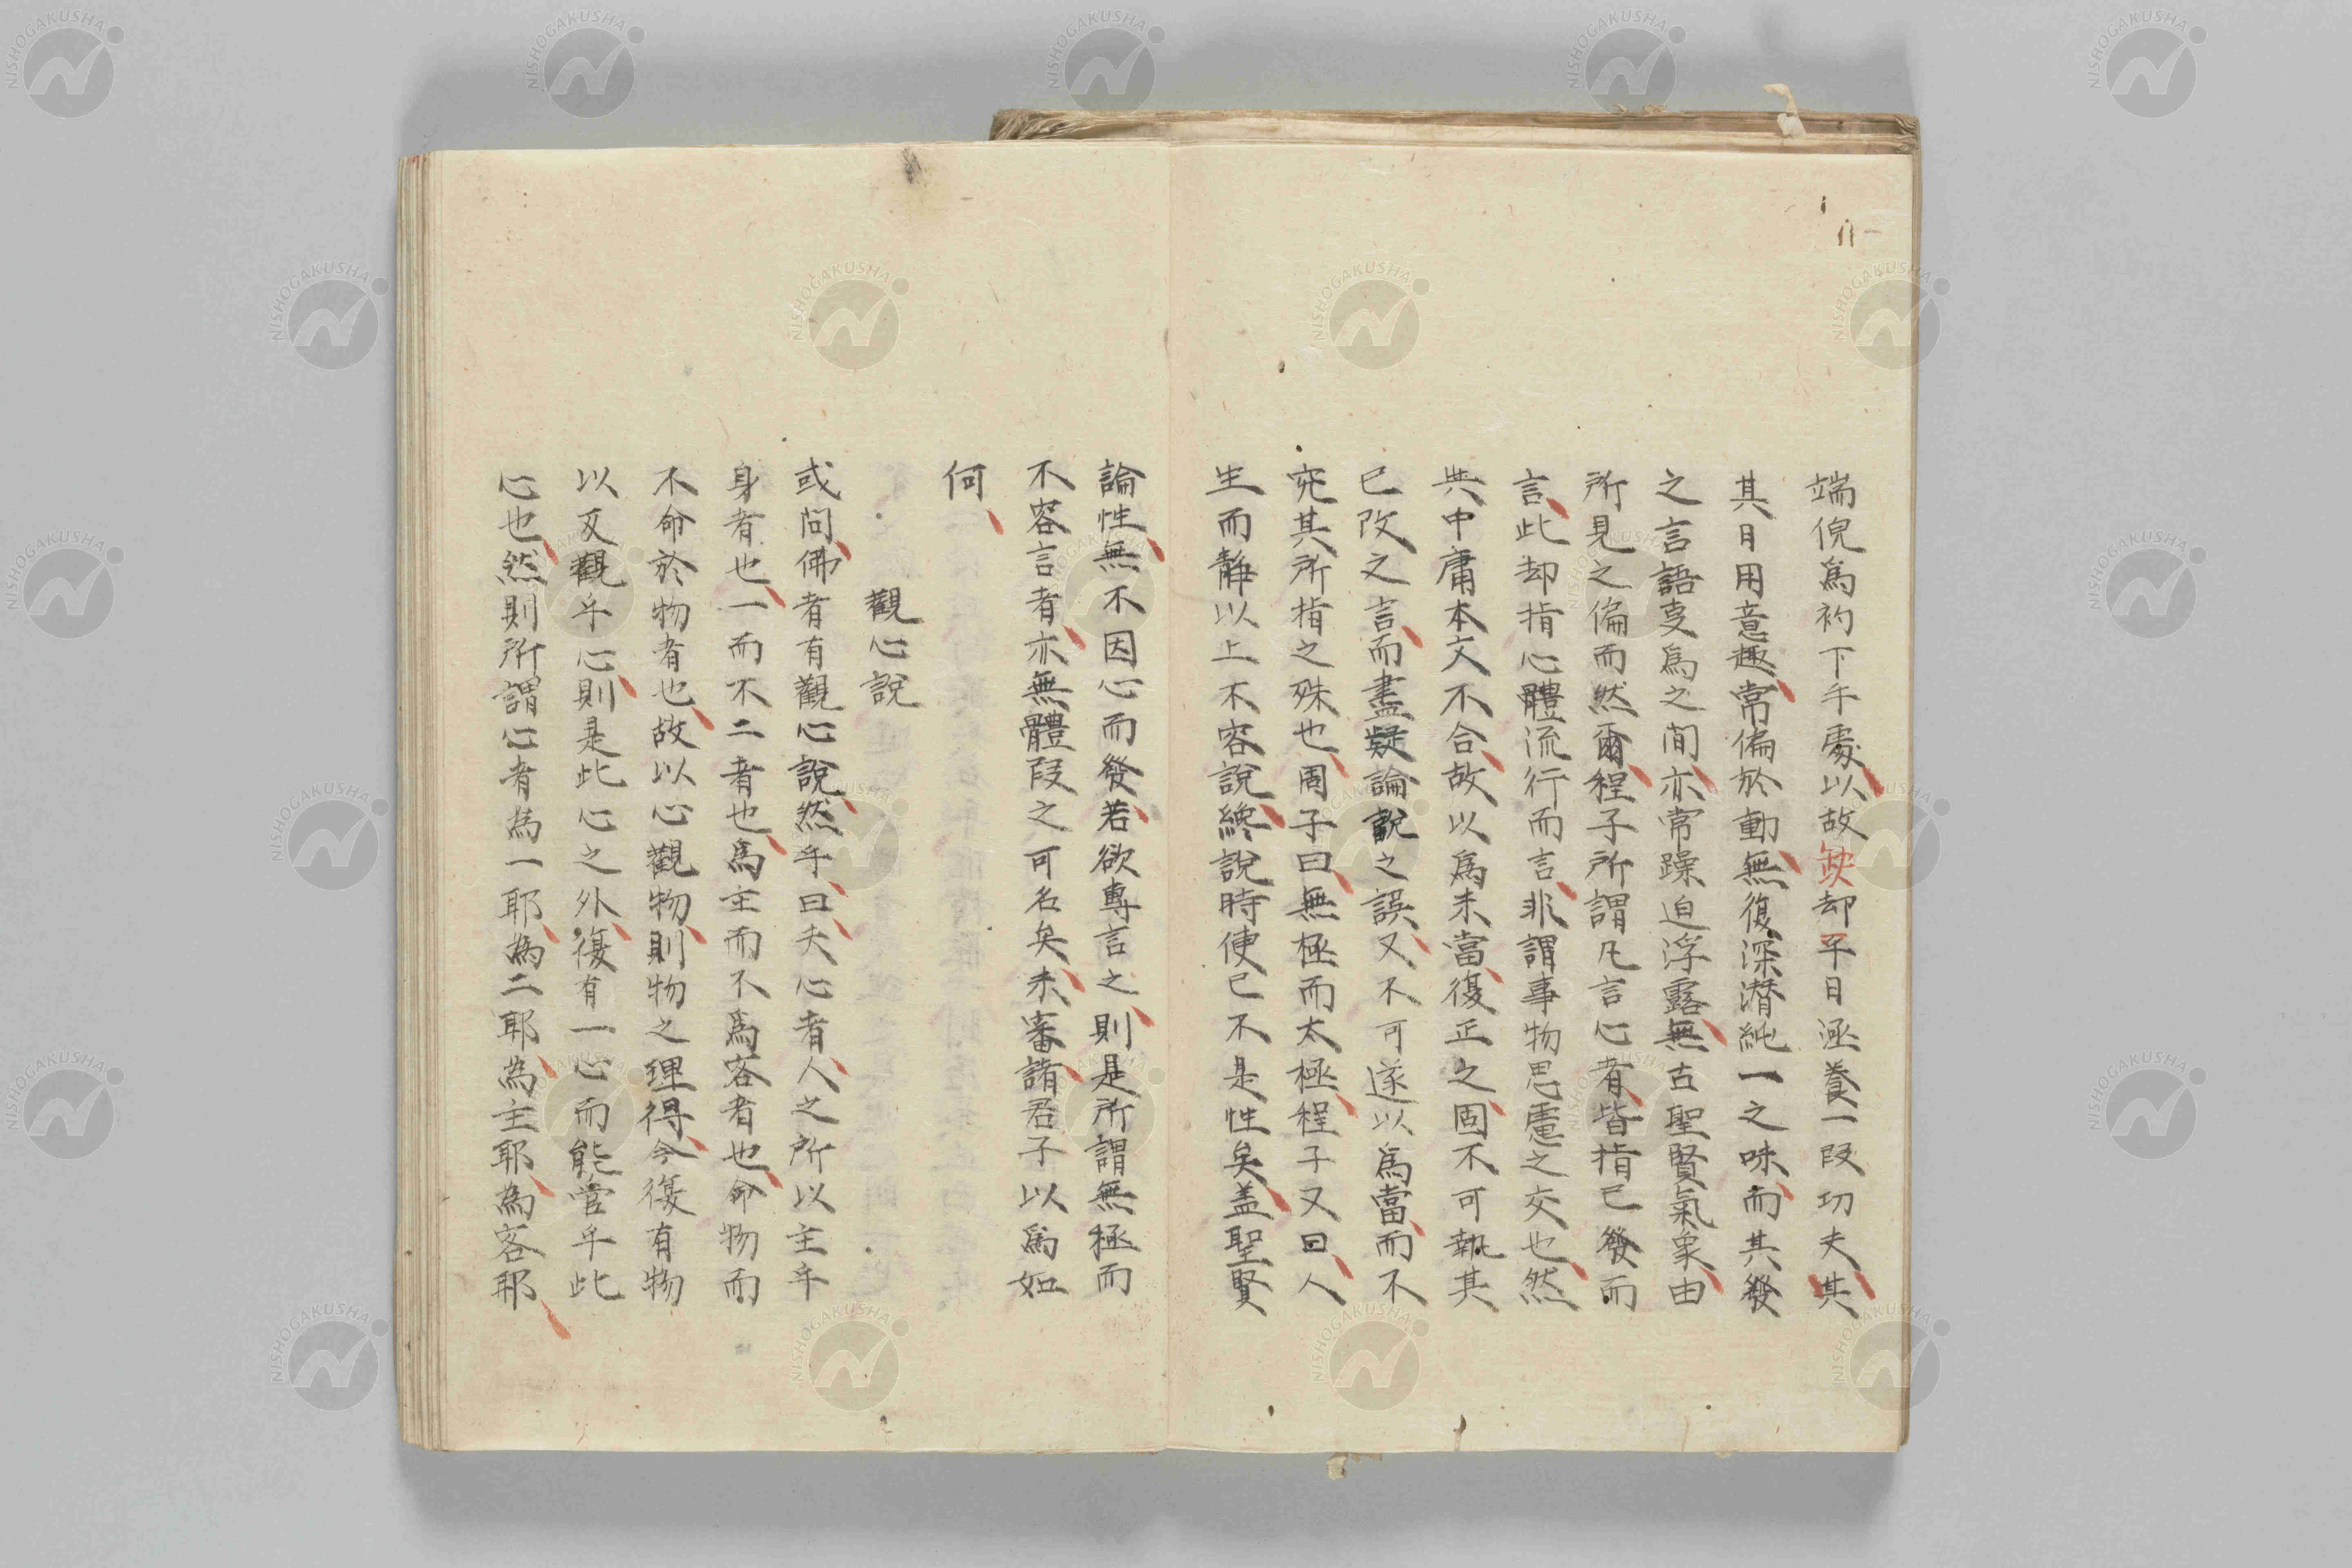 端倪爲初下手處以故缺却平日涵養一段功夫其
其日用意趣常偏於動無復深潛純一之味而其發
之言語事爲之間亦常躁迫浮露無古聖賢氣象由
所見之偏而然爾程子所謂凡言心者皆指已發而
言此却指心體流行而言非謂事物思慮之交也然
與中庸本文不合故以爲未當復正之固不可執其
已改之言而盡疑論說之誤又不可遂以爲當而不
究其所指之殊也周子曰無極而太極程子又曰人
生而靜以上不容說纔說時便已不是性矣盖聖賢
論性無不因心而發若欲專言之則是所謂無極而
不容言者亦無體段之可名矣未審諸君子以爲如
何
觀心說
或問佛者有觀心說然乎曰夫心者人之所以主乎
身者也一而不二者也爲主而不爲客者也命物而
不命於物者也故以心觀物則物之理得今復有物
以反觀乎心則是此心之外復有一心而能管乎此
心也然則所謂心者為一耶為二耶為主耶為客耶
NISHOGAKUSHA